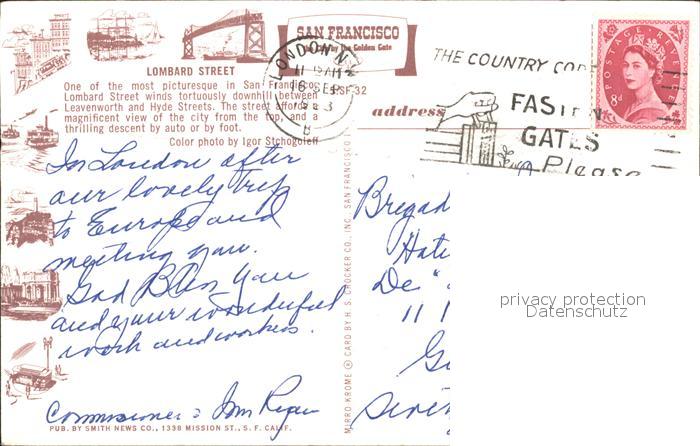 SAN FRANCISCO
LOMBARD STREET
One of the most picturesque in San Francisco,
Lombard Street winds tortuously downhill between
Leavenworth and Hyde Streets. The street affords a
magnificent view of the city from the top, and a
thrilling descent by auto or by foot.
Color photo by Igor Stchogoleff
SF 32
LONDON N
16 SEP
THE COUNTRY CODE
FASTEN
GATES
Please
POSTAGE REVENUE
8d
address
In London after
our lovely trip
to Europe and
meeting you.
God Bless You
and your wonderful
work and workers.
Commissioner
PUB. BY SMITH NEWS CO., 1338 MISSION ST., S. F. CALIF.
MIRRO-KROME ® CARD BY H. S. CROCKER CO., INC. SAN FRANCISCO
Brigad
De "
11
privacy protection
Datenschutz